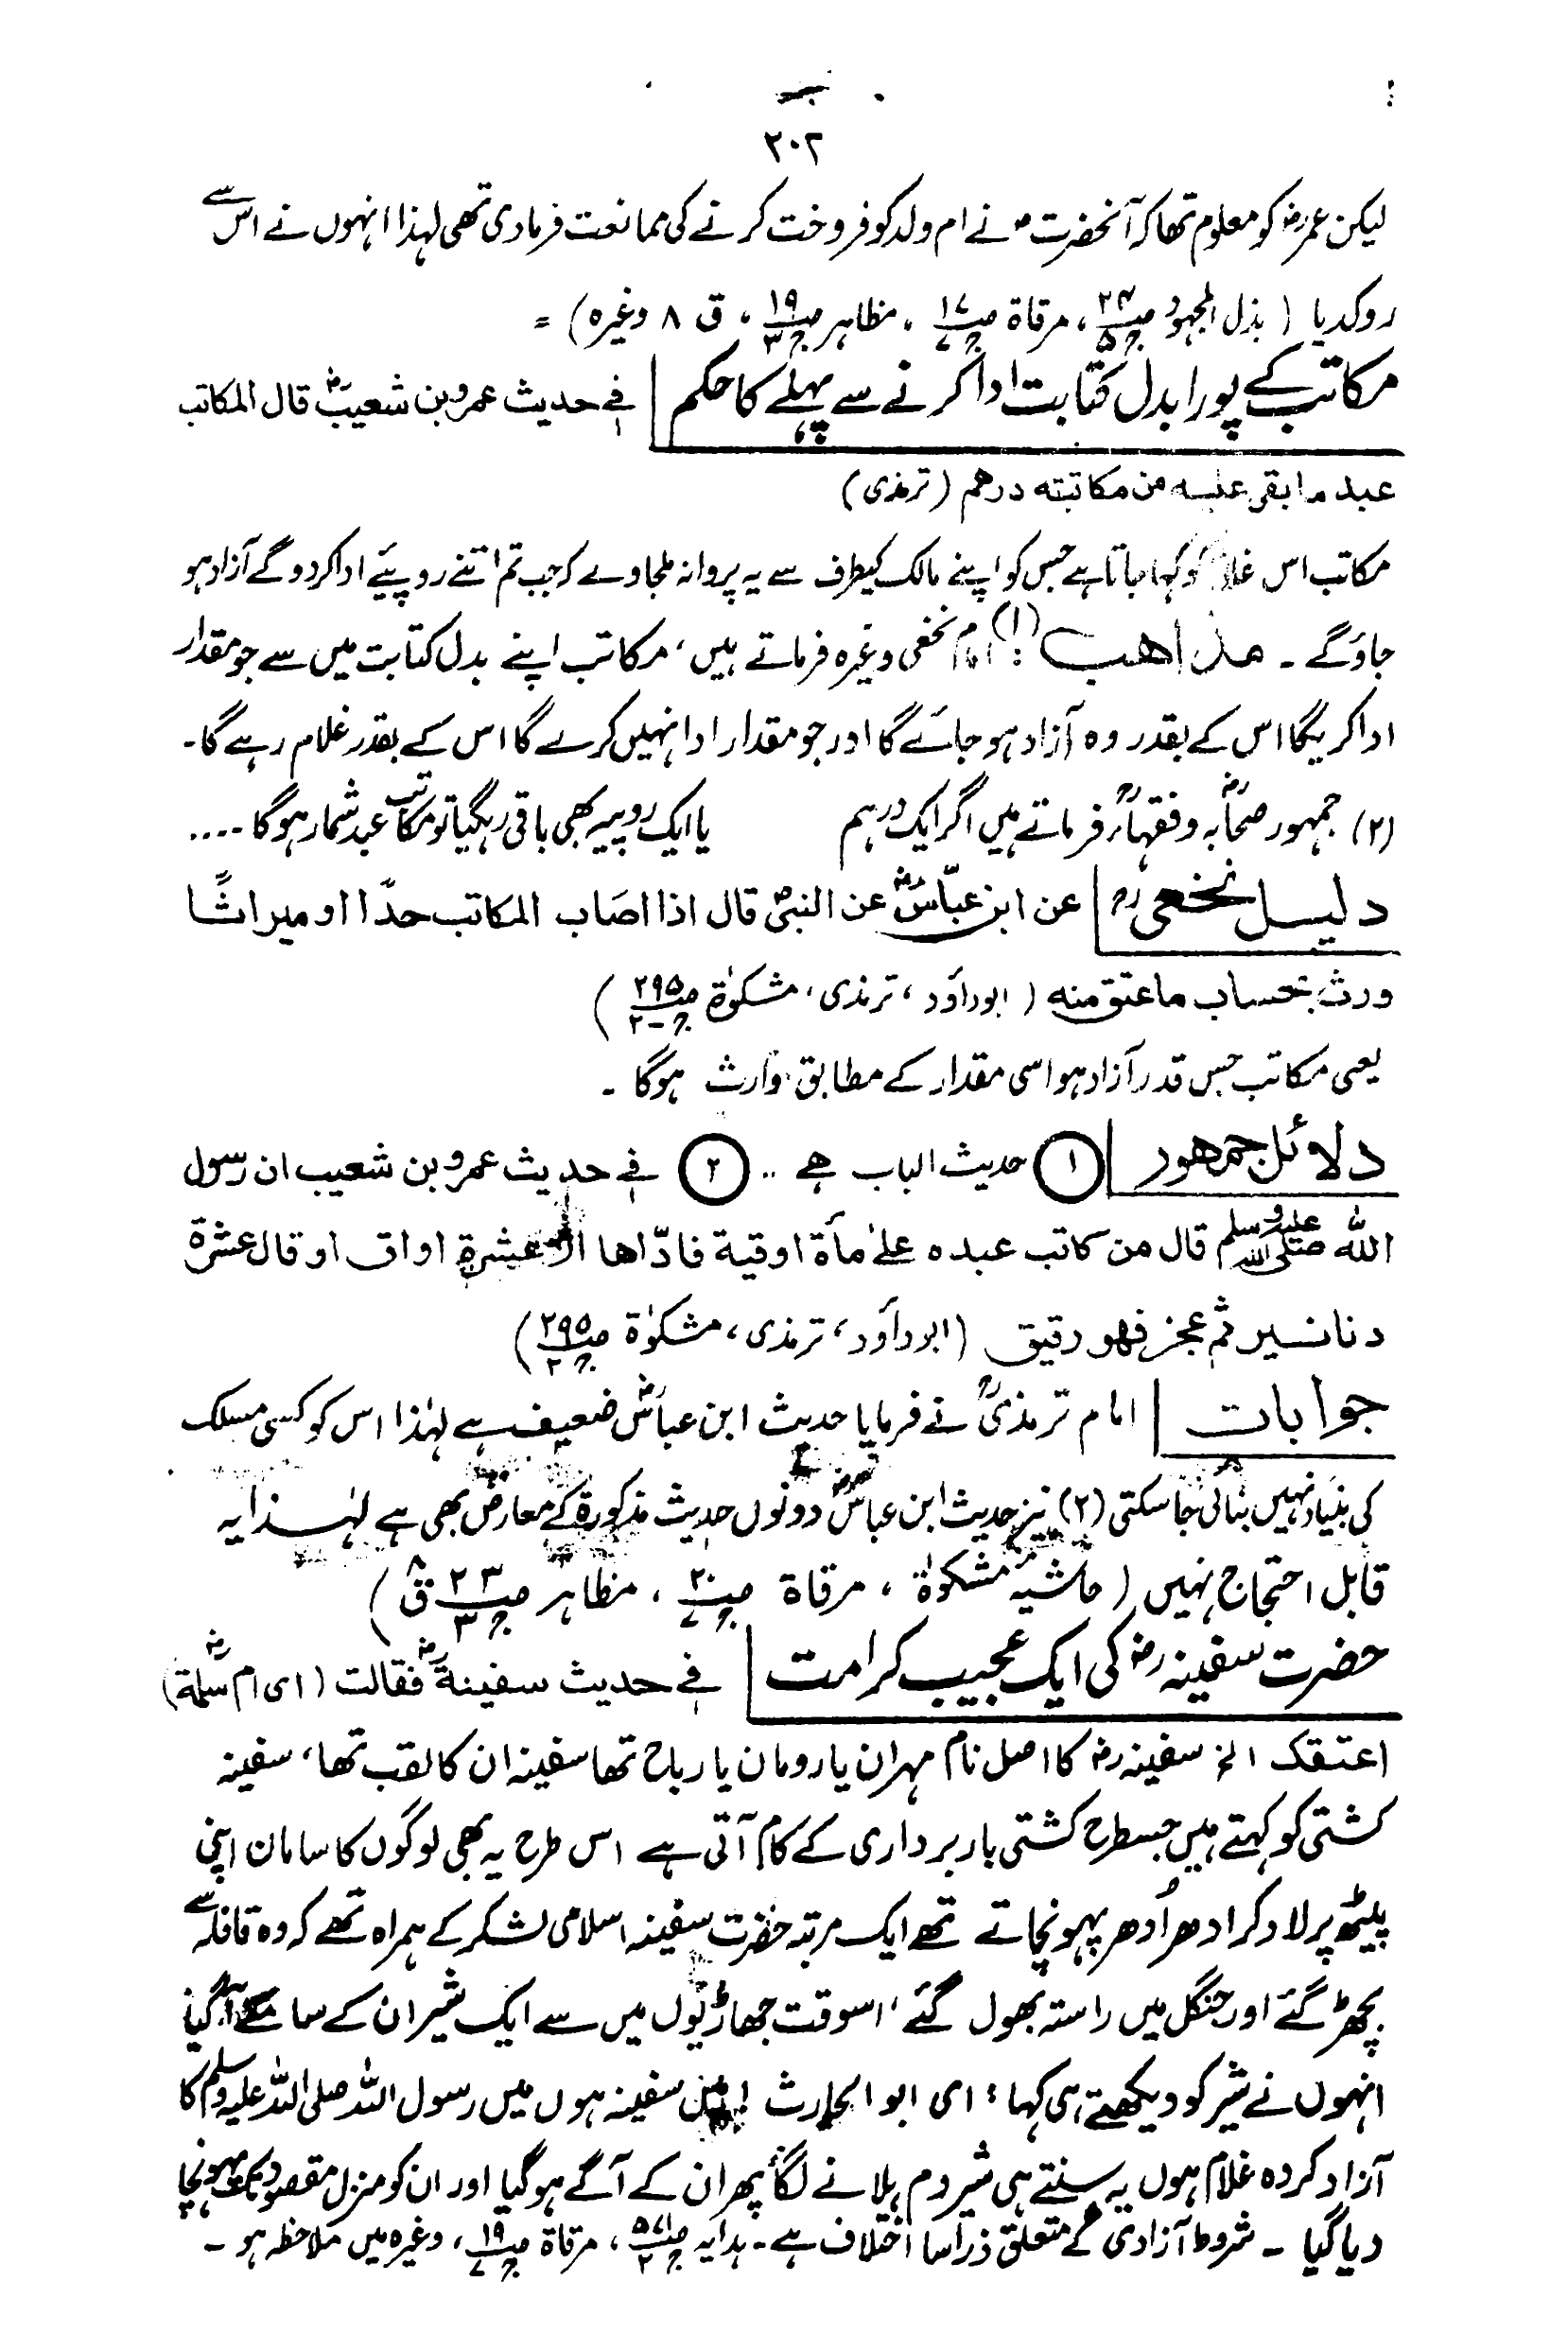 ۲۰۲
لیکن عمرؓ کو معلوم تھا کہ آنحضرتؐ نے ام ولد کو فروخت کرنے کی ممانعت فرمادی تھی لہذا انہوں نے اس سے
روکدیا ( بذل المجہود ص۲۴ ج۵ ، مرقاۃ ص۱۷ ج۷ ، مظاہر ص۱۹ ج۳ ، ق ۸ وغیرہ ) =
مکاتب کے پورا بدل کتابت ادا کرنے سے پہلے کا حکم | فی حدیث عمرو بن شعیبؓ قال المکاتب
عبد ما بقی علیہ من مکاتبتہ درھم (ترمذی)
مکاتب اس غلام کو کہا جاتا ہے جس کو اپنے مالک کیطرف سے یہ پروانہ ملجاوے کہ جب تم اتنے روپیئے ادا کردو گے آزاد ہو
جاؤگے ۔ مذاھب : (۱) امام نخعی وغیرہ فرماتے ہیں ، مکاتب اپنے بدل کتابت میں سے جو مقدار
ادا کریگا اس کے بقدر وہ آزاد ہو جائے گا اور جو مقدار ادا نہیں کرے گا اس کے بقدر غلام رہے گا۔
(۲) جمہور صحابہؓ و فقہاءؒ فرماتے ہیں اگر ایک درہم یا ایک روپیہ بھی باقی رہگیا تو مکاتب عبد شمار ہوگا ۔۔۔۔
دلیل نخعیؒ | عن ابن عبّاسؓ عن النبیؐ قال اذا اصاب المکاتب حدّا او میراثًا
ورث بحساب ما عتق منہ ( ابوداؤد ، ترمذی ، مشکوٰۃ ص۲۹۵ ج۲ )
یعی مکاتب جس قدر آزاد ہو اسی مقدار کے مطابق وارث ہوگا ۔
دلائل جمہور | ۱ حدیث الباب ہے .. ۲ فی حدیث عمرو بن شعیب ان رسول
اللہ صلی اللہ علیہ وسلم قال من کاتب عبدہ علیٰ مأۃ اوقیۃ فادّاھا الا عشرۃ اواق او قال عشرۃ
دنانیر ثم عجز فھو رقیق (ابوداؤد ، ترمذی ، مشکوٰۃ ص۲۹۵ ج۲)
جوابات | امام ترمذیؒ نے فرمایا حدیث ابن عباسؓ ضعیف ہے لہٰذا اس کو کسی مسلک
کی بنیاد نہیں بنائی جا سکتی (۲) نیز حدیث ابن عباسؓ دونوں حدیث مذکورۃ کے معارض بھی ہے لہٰذا یہ
قابل احتجاج نہیں ( حاشیہ مشکوٰۃ ، مرقاۃ ص۲۰ ج۷ ، مظاہر ص۲۳ ج۳ ق۸ )
حضرت سفینہؓ کی ایک عجیب کرامت | فی حدیث سفینۃؓ فقالت (ای ام سلمۃؓ)
اعتقک الخ سفینہؓ کا اصل نام مہران یا رومان یا رباح تھا سفینہ ان کا لقب تھا ، سفینہ
کشتی کو کہتے ہیں جسطرح کشتی باربرداری کے کام آتی ہے اس طرح یہ بھی لوگوں کا سامان اپنی
پیٹھ پر لاد کر ادھر اُدھر پہونچاتے تھے ایک مرتبہ حضرت سفینہ اسلامی لشکر کے ہمراہ تھے کہ وہ قافلہ سے
بچھڑ گئے اور جنگل میں راستہ بھول گئے ، اسوقت جھاڑیوں میں سے ایک شیر ان کے سامنے آگیا
انہوں نے شیر کو دیکھتے ہی کہا : ای ابو الحارث ! میں سفینہ ہوں میں رسول اللہ صلی اللہ علیہ وسلم کا
آزاد کردہ غلام ہوں یہ سنتے ہی شیر دم ہلانے لگا پھر ان کے آگے ہوگیا اور ان کو منزل مقصود تک پہونچا
دیا گیا ۔ شروط آزادی کے متعلق ذرا سا اختلاف ہے ۔ ہدایہ ج۲ ، مرقاۃ ص۱۹ ج۷ ، وغیرہ میں ملاحظہ ہو ۔